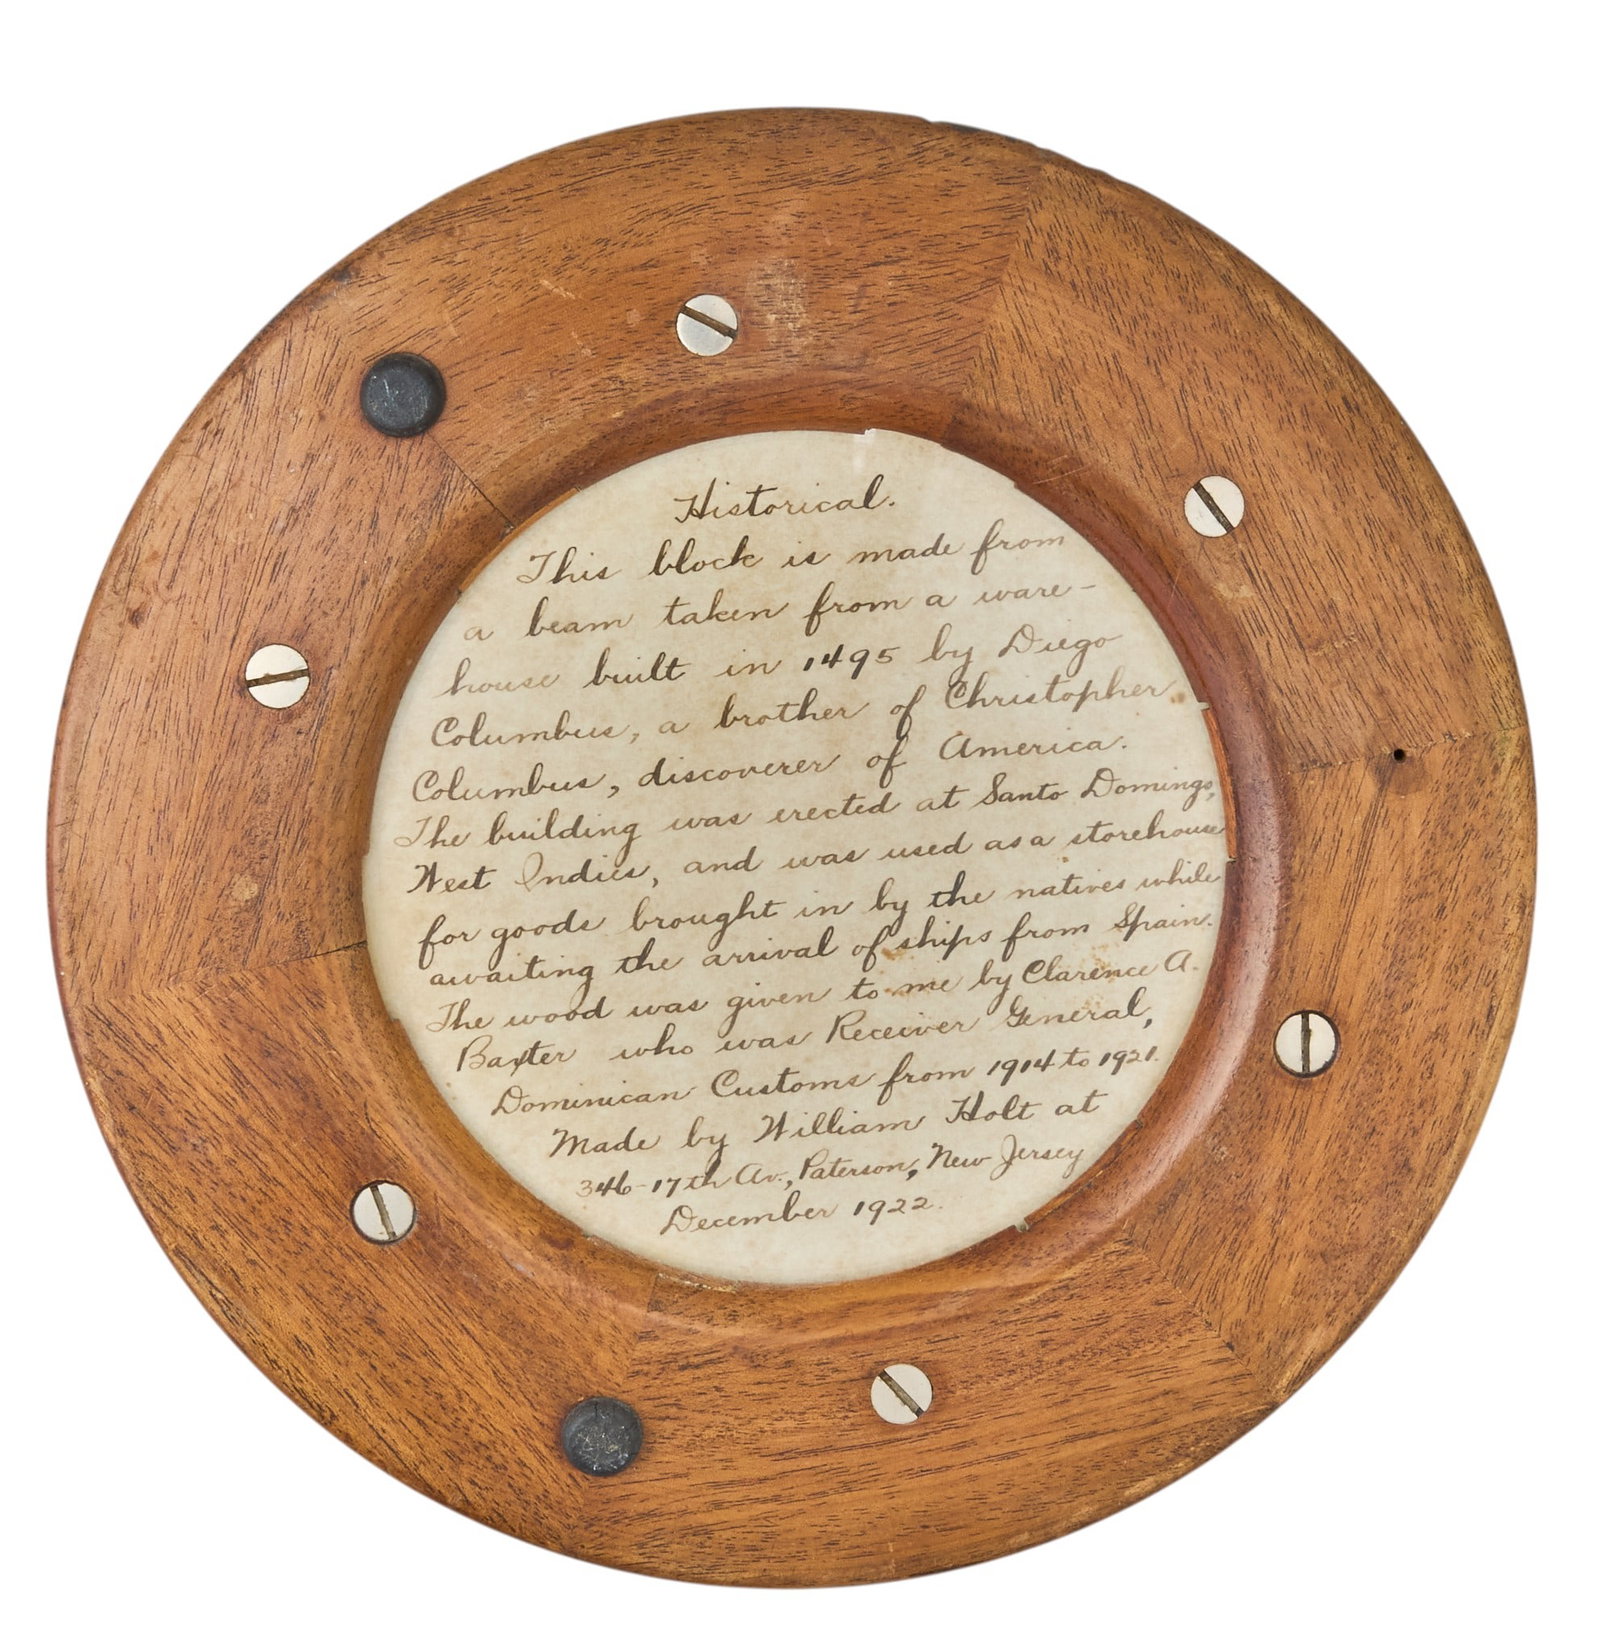 Historical.
This block is made from
a beam taken from a ware-
house built in 1495 by Diego
Columbus, a brother of Christopher
Columbus, discoverer of America.
The building was erected at Santo Domingo,
West Indies, and was used as a storehouse
for goods brought in by the natives while
awaiting the arrival of ships from Spain.
The wood was given to me by Clarence A.
Baxter who was Receiver General,
Dominican Customs from 1914 to 1921.
Made by William Holt at
346-17th Av., Paterson, New Jersey
December 1922.